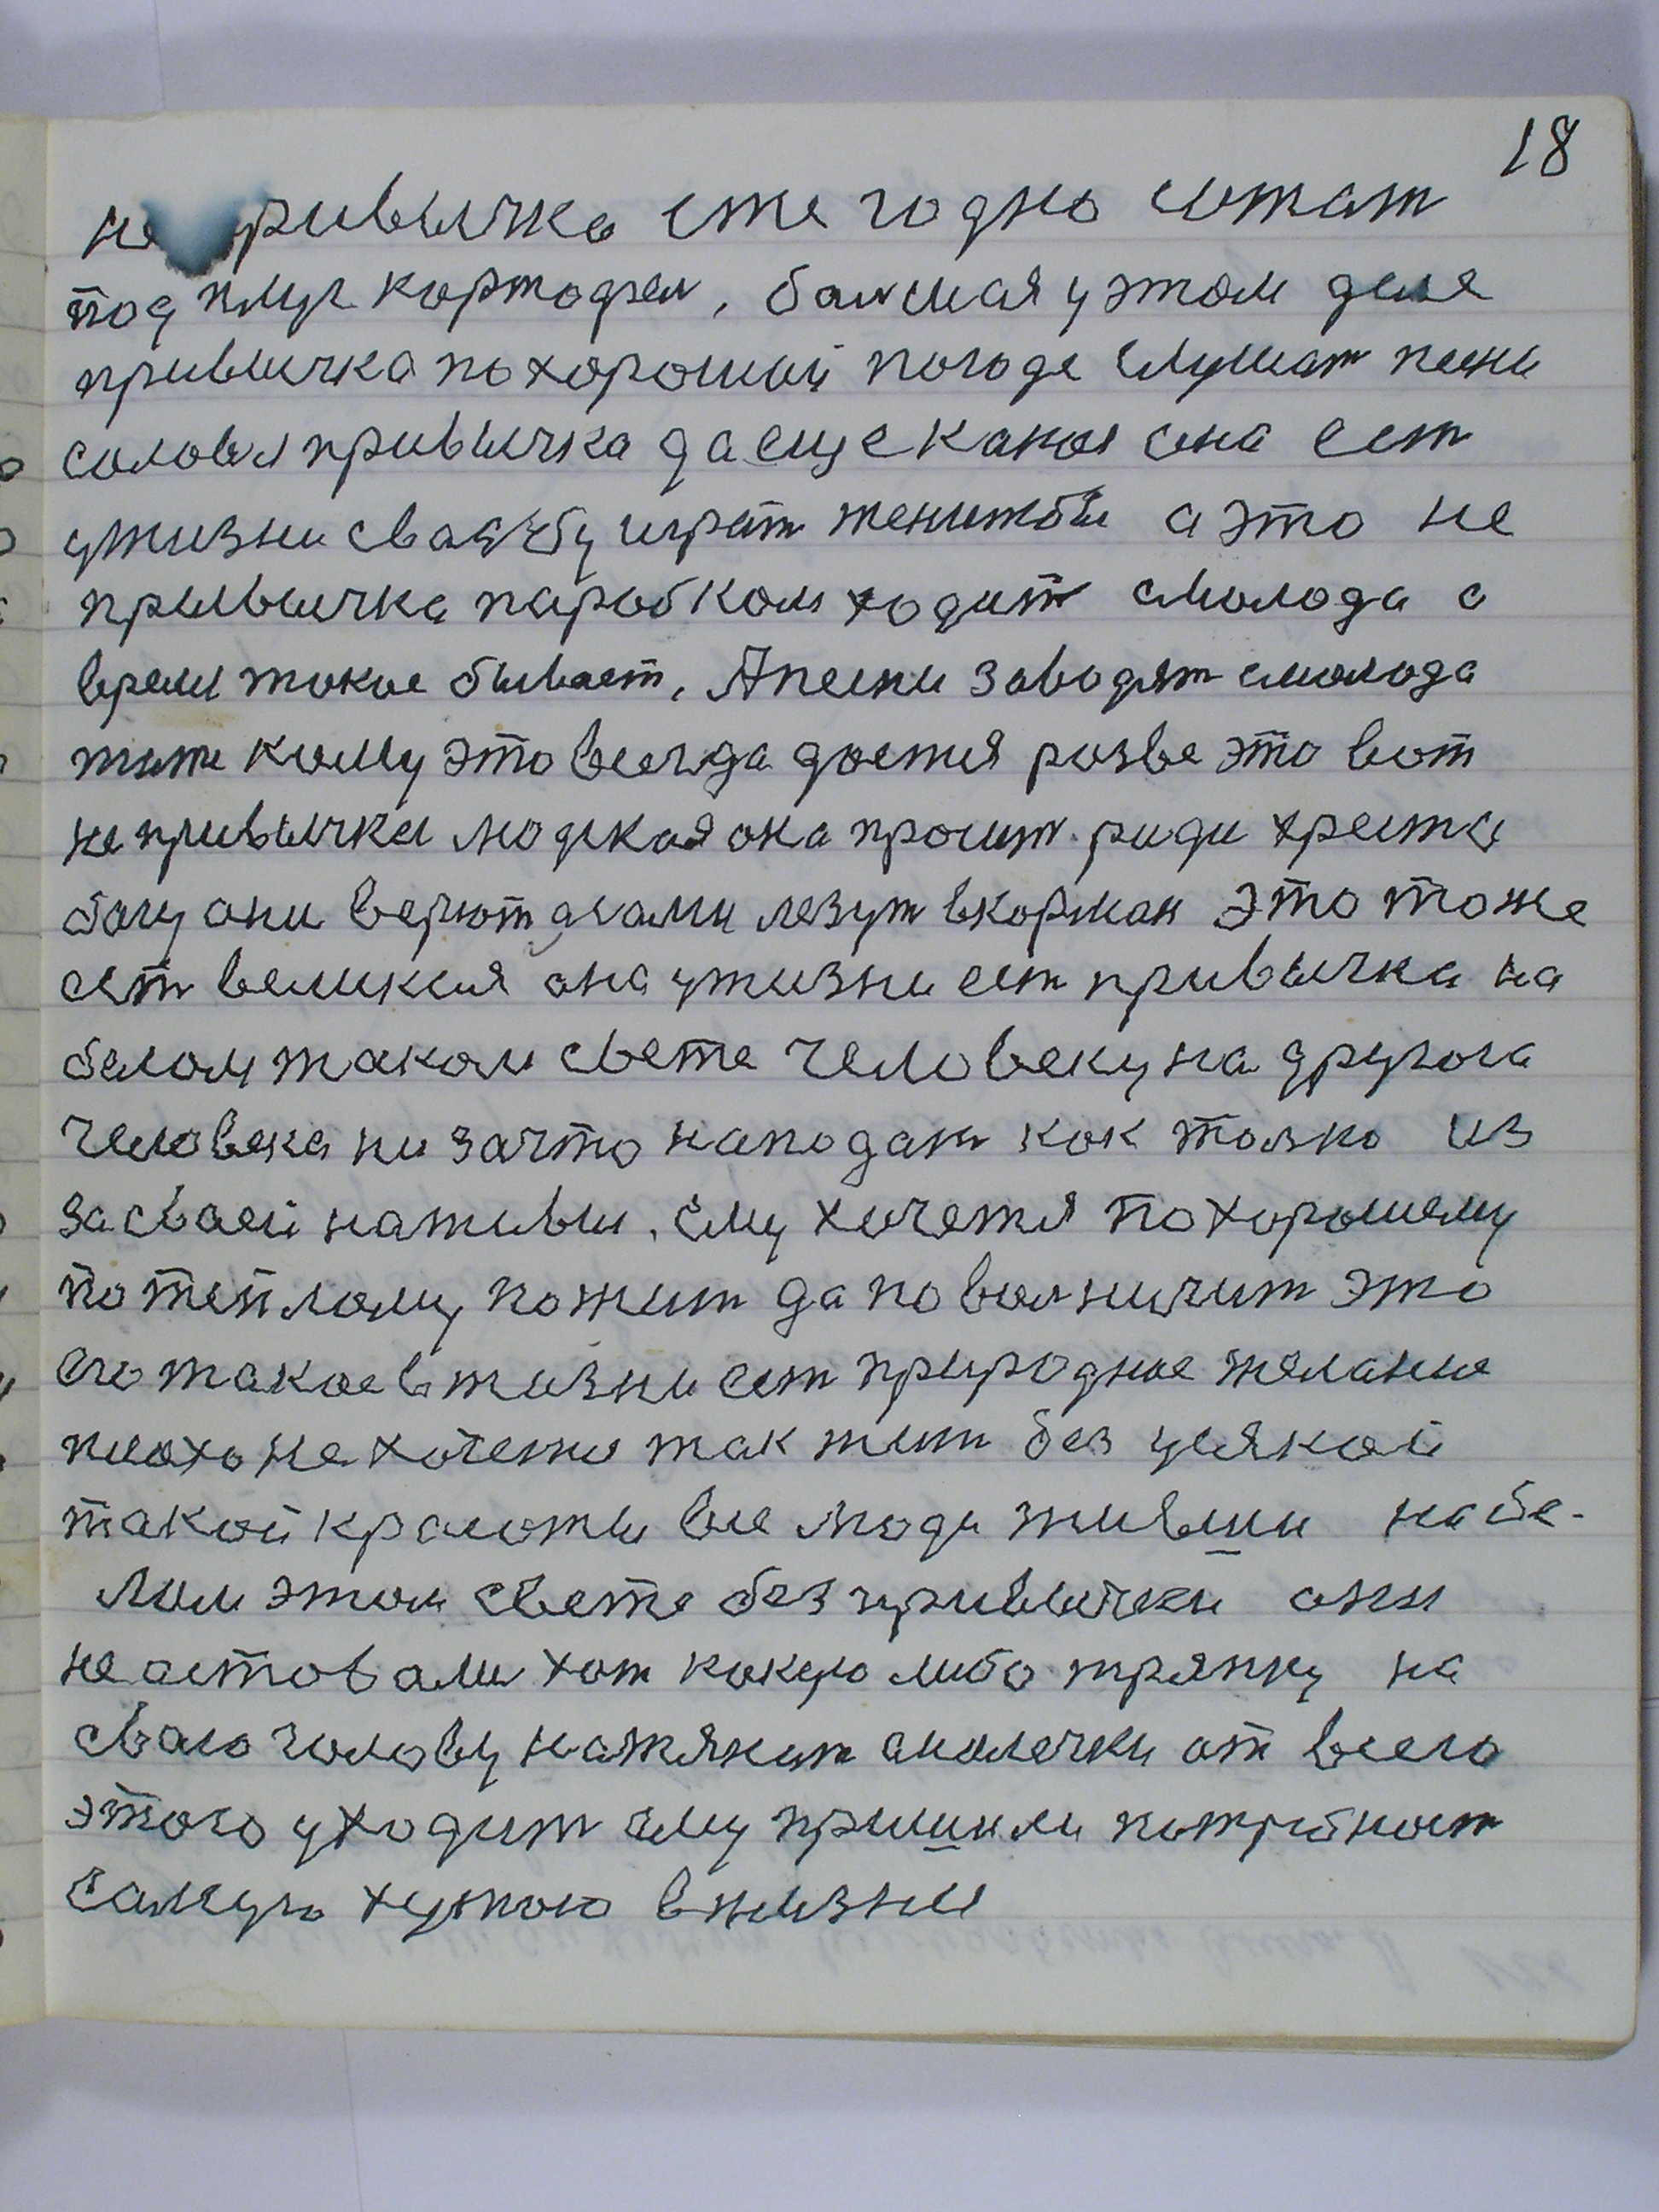 18
не привычка ежегодно сожат
под плуг картофел, балшая у этом деле
привычка по хорошый погоде слушат песни
соловя привычка да еще какая она ест
ужизни свадьбу играт женитбы а это не
привычка паробком ходит смолода а
время такое бывает, А песни заводят смолода
жит кому это всегда дается розве это вот
не привычка людская она просит ради христа
богу они верют а сами лезут в корман это тоже
ест великая она ужизни ест привычка на
белом таком свете человеку на другога
человека ни зачто нападат как толко из
за своей наживы, ему хочется по хорошему
по теплому пожит да поволничит это
его такое в жизни ест природное желание
плохо не хочется так жит без усякой
такой красоты все люди жившии на бе-
лом этом свете без привычки они
не астовали хот какую либо тряпку на
сваю голову натянит а иолечки от всего
этого уходит ему пришили
самую худшою в жизни